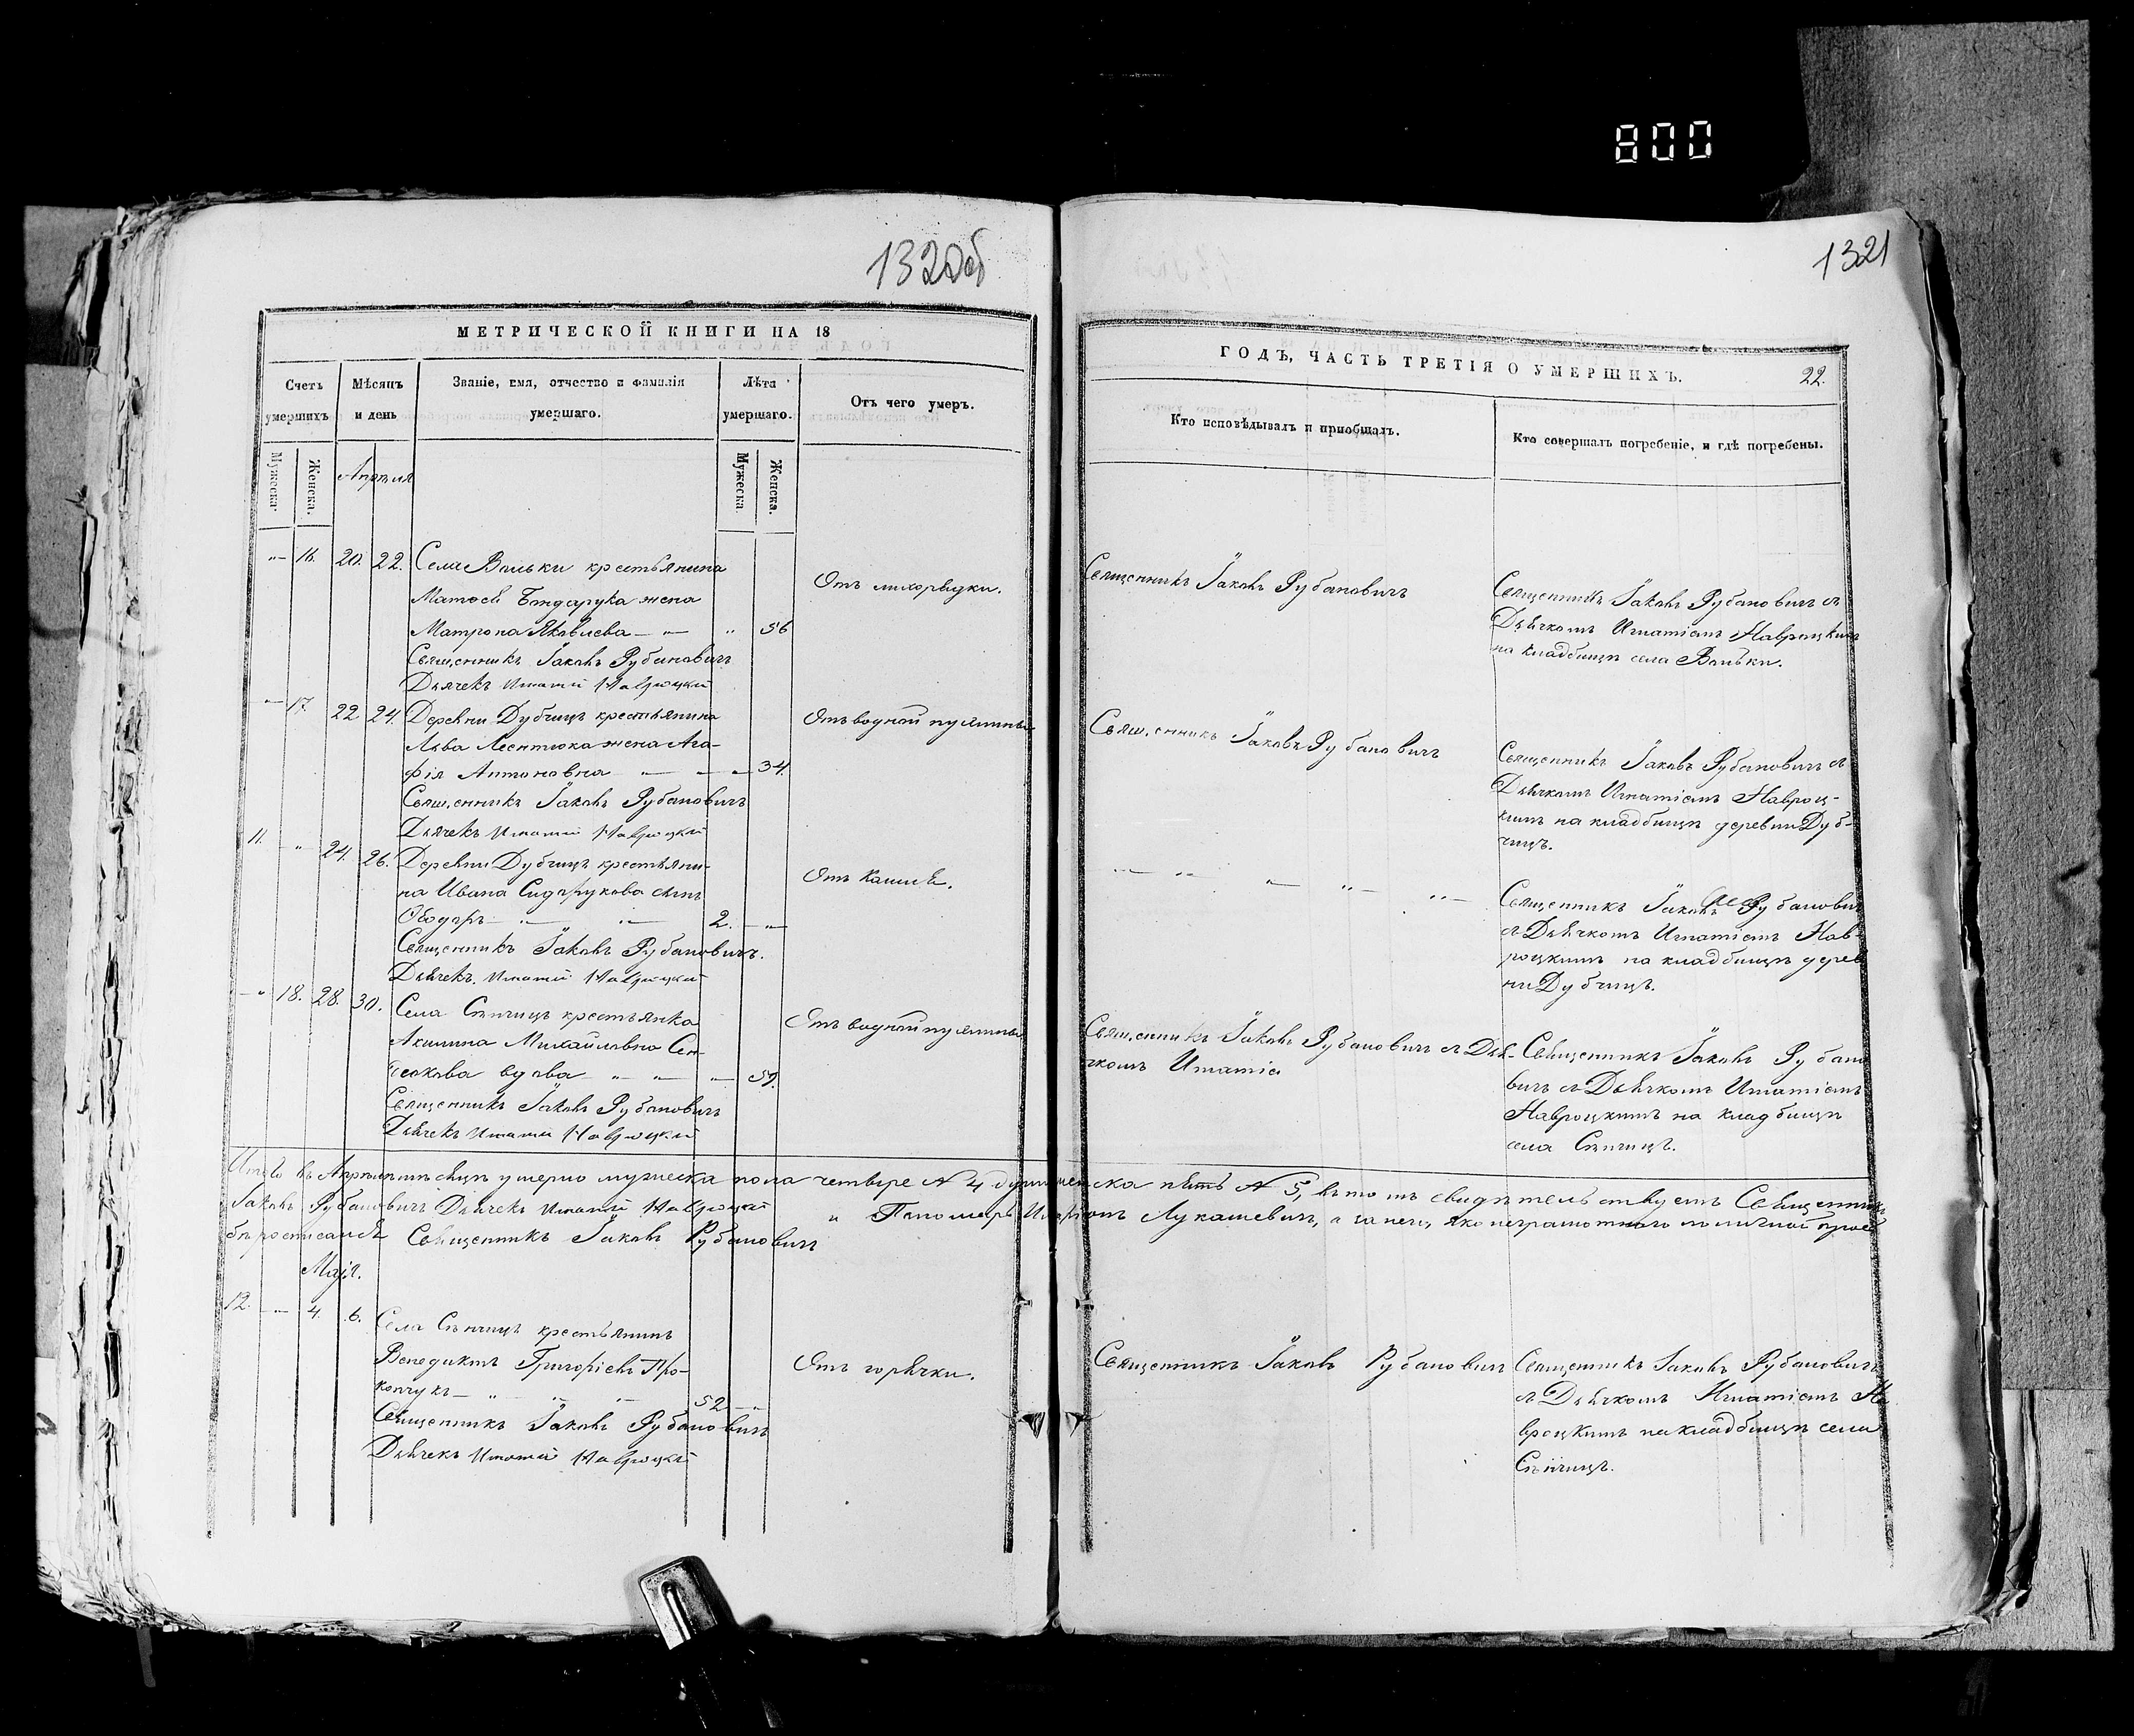 800
1320об
1321
МЕТРИЧЕСКОЙ КНИГИ НА 18
Счетъ умершихъ
Мѣсяцъ и день
Званіе, имя, отчество и фамилія умершаго.
Лѣта умершаго.
Отъ чего умеръ.
Мужеска.
Женска.
Мужеска.
Женска.
Апрѣля
"— 16. 20. 22. Села Вольки крестьянина
Матѳея Бондарука жена
Матрона Яковлева — "— " 56
Отъ лихорадки.
Священникъ Іаковъ Рубановичъ
Дьячекъ Игнатій Навроцкій
"— 17. 22 24. Деревни Дубчицъ крестьянина
Льва Леонтюка жена Ага-
фія Антоновна — — — 34.
Отъ водной пухлины
Священникъ Іаковъ Рубановичъ
Дьячекъ Игнатій Навроцкій
11. " 24. 26. Деревни Дубчицъ крестьяни-
на Ивана Сидорукова сынъ
Ѳеодоръ — "— "— 2. — "—
Отъ кашля.
Священникъ Іаковъ Рубановичъ.
Дьячекъ Игнатій Навроцкій
—" 18. 28. 30. Села Сѣнчицъ крестьянка
Акилина Михайловна Сен-
вдова — " — " — " — 59.
Отъ водной пухлины
Священникъ Іаковъ Рубановичъ
Дьячекъ Игнатій Навроцкій
Итого въ Апрѣлѣ мѣсяцѣ умерло мужеска пола четыре № 4 а женска пять № 5, въ томъ свидѣтельствуемъ Священникъ
Іаковъ Рубановичъ Дьячекъ Игнатій Навроцкій
и Пономарь Лукашевичъ, а за него, яко неграмотного по личной прось-
бѣ росписался Священникъ Іаковъ Рубановичъ
Маія.
12. — "— 4. 6. Села Сѣнчицъ крестьянинъ
Венедиктъ Григоріевъ Про-
копчукъ — " — "— — 52 — "
Отъ горячки.
Священникъ Іаковъ Рубановичъ
Дьячекъ Игнатій Навроцкій
ГОДЪ, ЧАСТЬ ТРЕТІЯ О УМЕРШИХЪ.
22.
Кто исповѣдывалъ и приобщалъ.
Кто совершалъ погребеніе, и гдѣ погребены.
Священникъ Іаковъ Рубановичъ
Священникъ Іаковъ Рубановичъ съ
Дьячкомъ Игнатіемъ Навроцкимъ
на кладбищѣ села Вольки.
Священникъ Іаковъ Рубановичъ
Священникъ Іаковъ Рубановичъ съ
Дьячкомъ Игнатіемъ Навроц-
кимъ на кладбищѣ деревни Дуб-
чицъ.
"— "— "— "— "—
Священникъ Іаковъ Рубановичъ
съ Дьячкомъ Игнатіемъ Нав-
роцкимъ на кладбищѣ дерев
ни Дубчицъ.
Священникъ Іаковъ Рубановичъ съ Дья-
чкомъ Игнатіе
Священникъ Іаковъ Рубано
вичъ съ Дьячкомъ Игнатіемъ
Навроцкимъ на кладбищѣ
села Сѣнчицъ.
Священникъ Іаковъ Рубановичъ
Священникъ Іаковъ Рубановичъ
съ Дьячкомъ Игнатіемъ На
вроцкимъ на кладбищѣ села
Сѣнчицъ.